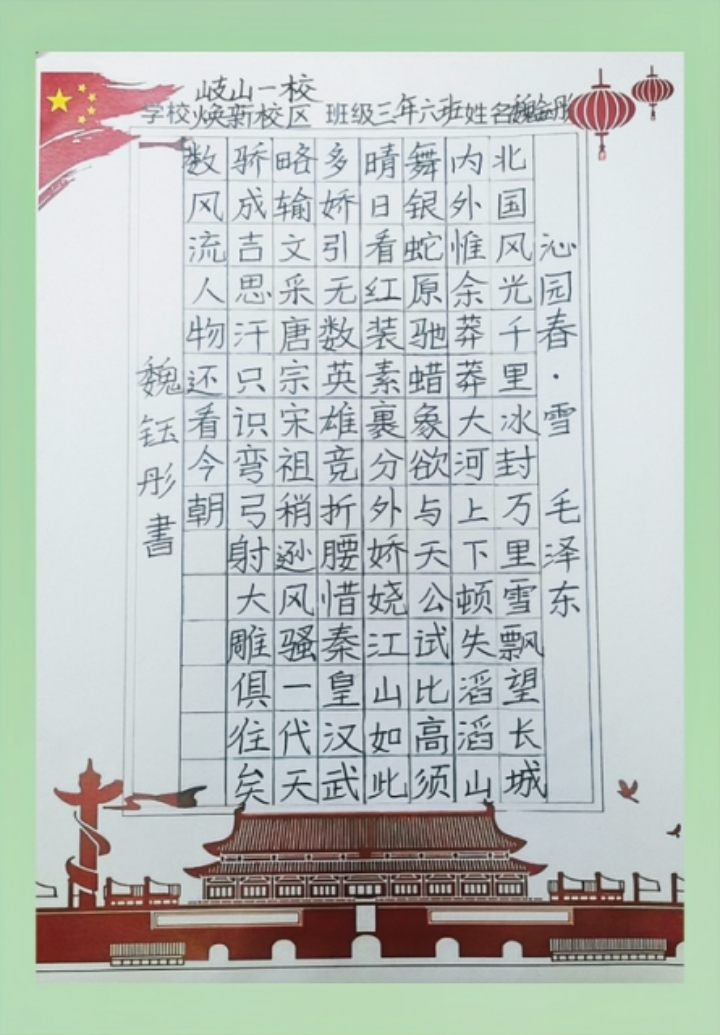 岐山一校
学校焕新校区 班级三年六班姓名魏钰彤
沁园春·雪 毛泽东
北国风光千里冰封万里雪飘望长城
内外惟余莽莽大河上下顿失滔滔山
舞银蛇原驰蜡象欲与天公试比高须
晴日看红装素裹分外娇娆江山如此
多娇引无数英雄竞折腰惜秦皇汉武
略输文采唐宗宋祖稍逊风骚一代天
骄成吉思汗只识弯弓射大雕俱往矣
数风流人物还看今朝
魏钰彤書